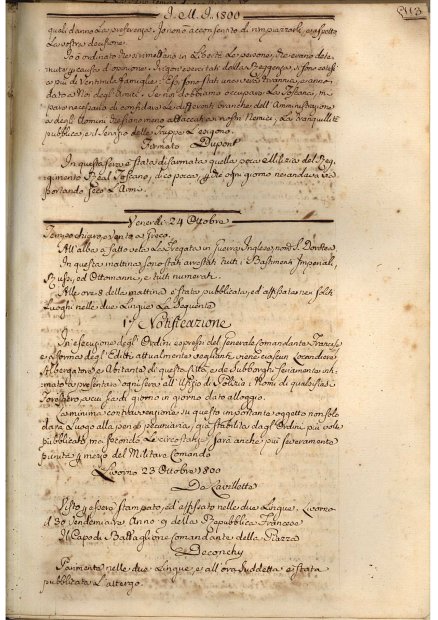 I. M. I. 1800
113
quali danno la preferenza. Io non ò acconsentito di rimpiazzarli, ed aspetto
la vostra decisione.
Io ò ordinato di rimettere in Libertà le persone, che erano dete-
nute per causa d'opinione. I rigori esercitati dalla Reggenza,
più di Ventimila famiglie: Essi sono stati
dato a Noi degli Amici. Se noi dobbiamo occupare la Toscana, mi
pare necessario di confidare le differenti branche dell'Amministrazione
a degli Uomini che siano meno attaccati a nostri Nemici; La tranquillità
pubblica, e il servizio delle Truppe l'esigono.
Firmato Dupont
In questa sera è stata disarmata quella poca Milizia del Reg-
gimento Real Toscano, dico poca, perchè ogni giorno ne andava via
portando seco l'Armi.
Venerdì 24 Ottobre
Tempo chiaro, e vento a Greco.
All'alba à fatto vela la Fregata in guerra Inglese, nom.a S. Dorotea.
In questa mattina sono stati arrestati tutti i Bastimenti Imperiali,
Russi, ed Ottomanni, e tutti numerati.
Alle ore 8 della mattina è stata pubblicata, ed affissata nei soliti
Luoghi nelle due Lingue la seguente
Notificazione
In esecuzione degli Ordini espressi del Generale Comandante Francese
e a forma degli Editti attualmente veglianti, viene ciascun Locandiere
Albergatore e Abitante di questa Città, e de Subborghi seriamente inti-
mato a presentare ogni sera all'Ufizio di Polizia i Nomi di qualsisia
Forestiero, a cui sia di giorno in giorno dato alloggio.
La minima contravvenzione su questo importante oggetto non solo
darà Luogo alla pena pecuniaria, già stabilita dagl'Ordini più volte
pubblicati, ma secondo le circostanze, sarà anche più severamente
punita per mezzo del Militare Comando
Livorno 23 Ottobre 1800
De Lavillette
Visto per essere stampato, ed affissato nelle due Lingue. Livorno
il 30 Vendemiatore Anno 9 della Repubblica Francese
Il Capo di Battaglione Comandante della Piazza
Deconchy
Parimente nelle due Lingue, e all'ora suddetta è stata
pubblicata l'altra